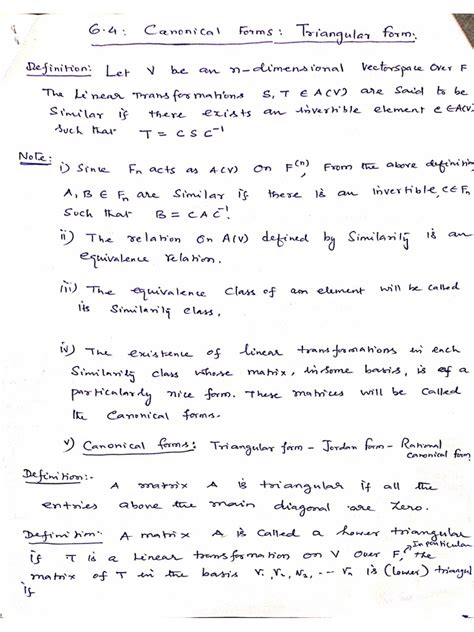 6.4: Canonical Forms: Triangular form:
Definition: Let V be an n-dimensional vectorspace over F
The Linear Transformations S, T ∈ A(V) are Said to be
Similar if there exists an invertible element C ∈ A(V)
Such that T = C S C⁻¹
Note:
i) Since Fn acts as A(V) on F⁽ⁿ⁾, From the above definition
A, B ∈ Fn are Similar if there is an invertible, C ∈ Fn
Such that B = C A C⁻¹.
ii) The relation on A(V) defined by Similarity is an
equivalence relation.
iii) The equivalence Class of an element will be called
its Similarity class.
iv) The existence of linear transformations in each
Similarity class whose matrix, in some basis, is of a
particularly nice form. These matrices will be Called
the Canonical forms.
v) Canonical forms: Triangular form - Jordan form - Rational
canonical form
Definition:-
A matrix A is triangular if all the
entries above the main diagonal are Zero.
Definition: A matrix A is called a Lower triangular
if T is a Linear transformation on V over F, the
In particular
matrix of T in the basis V₁, V₂, ... Vn is (lower) triangul
if